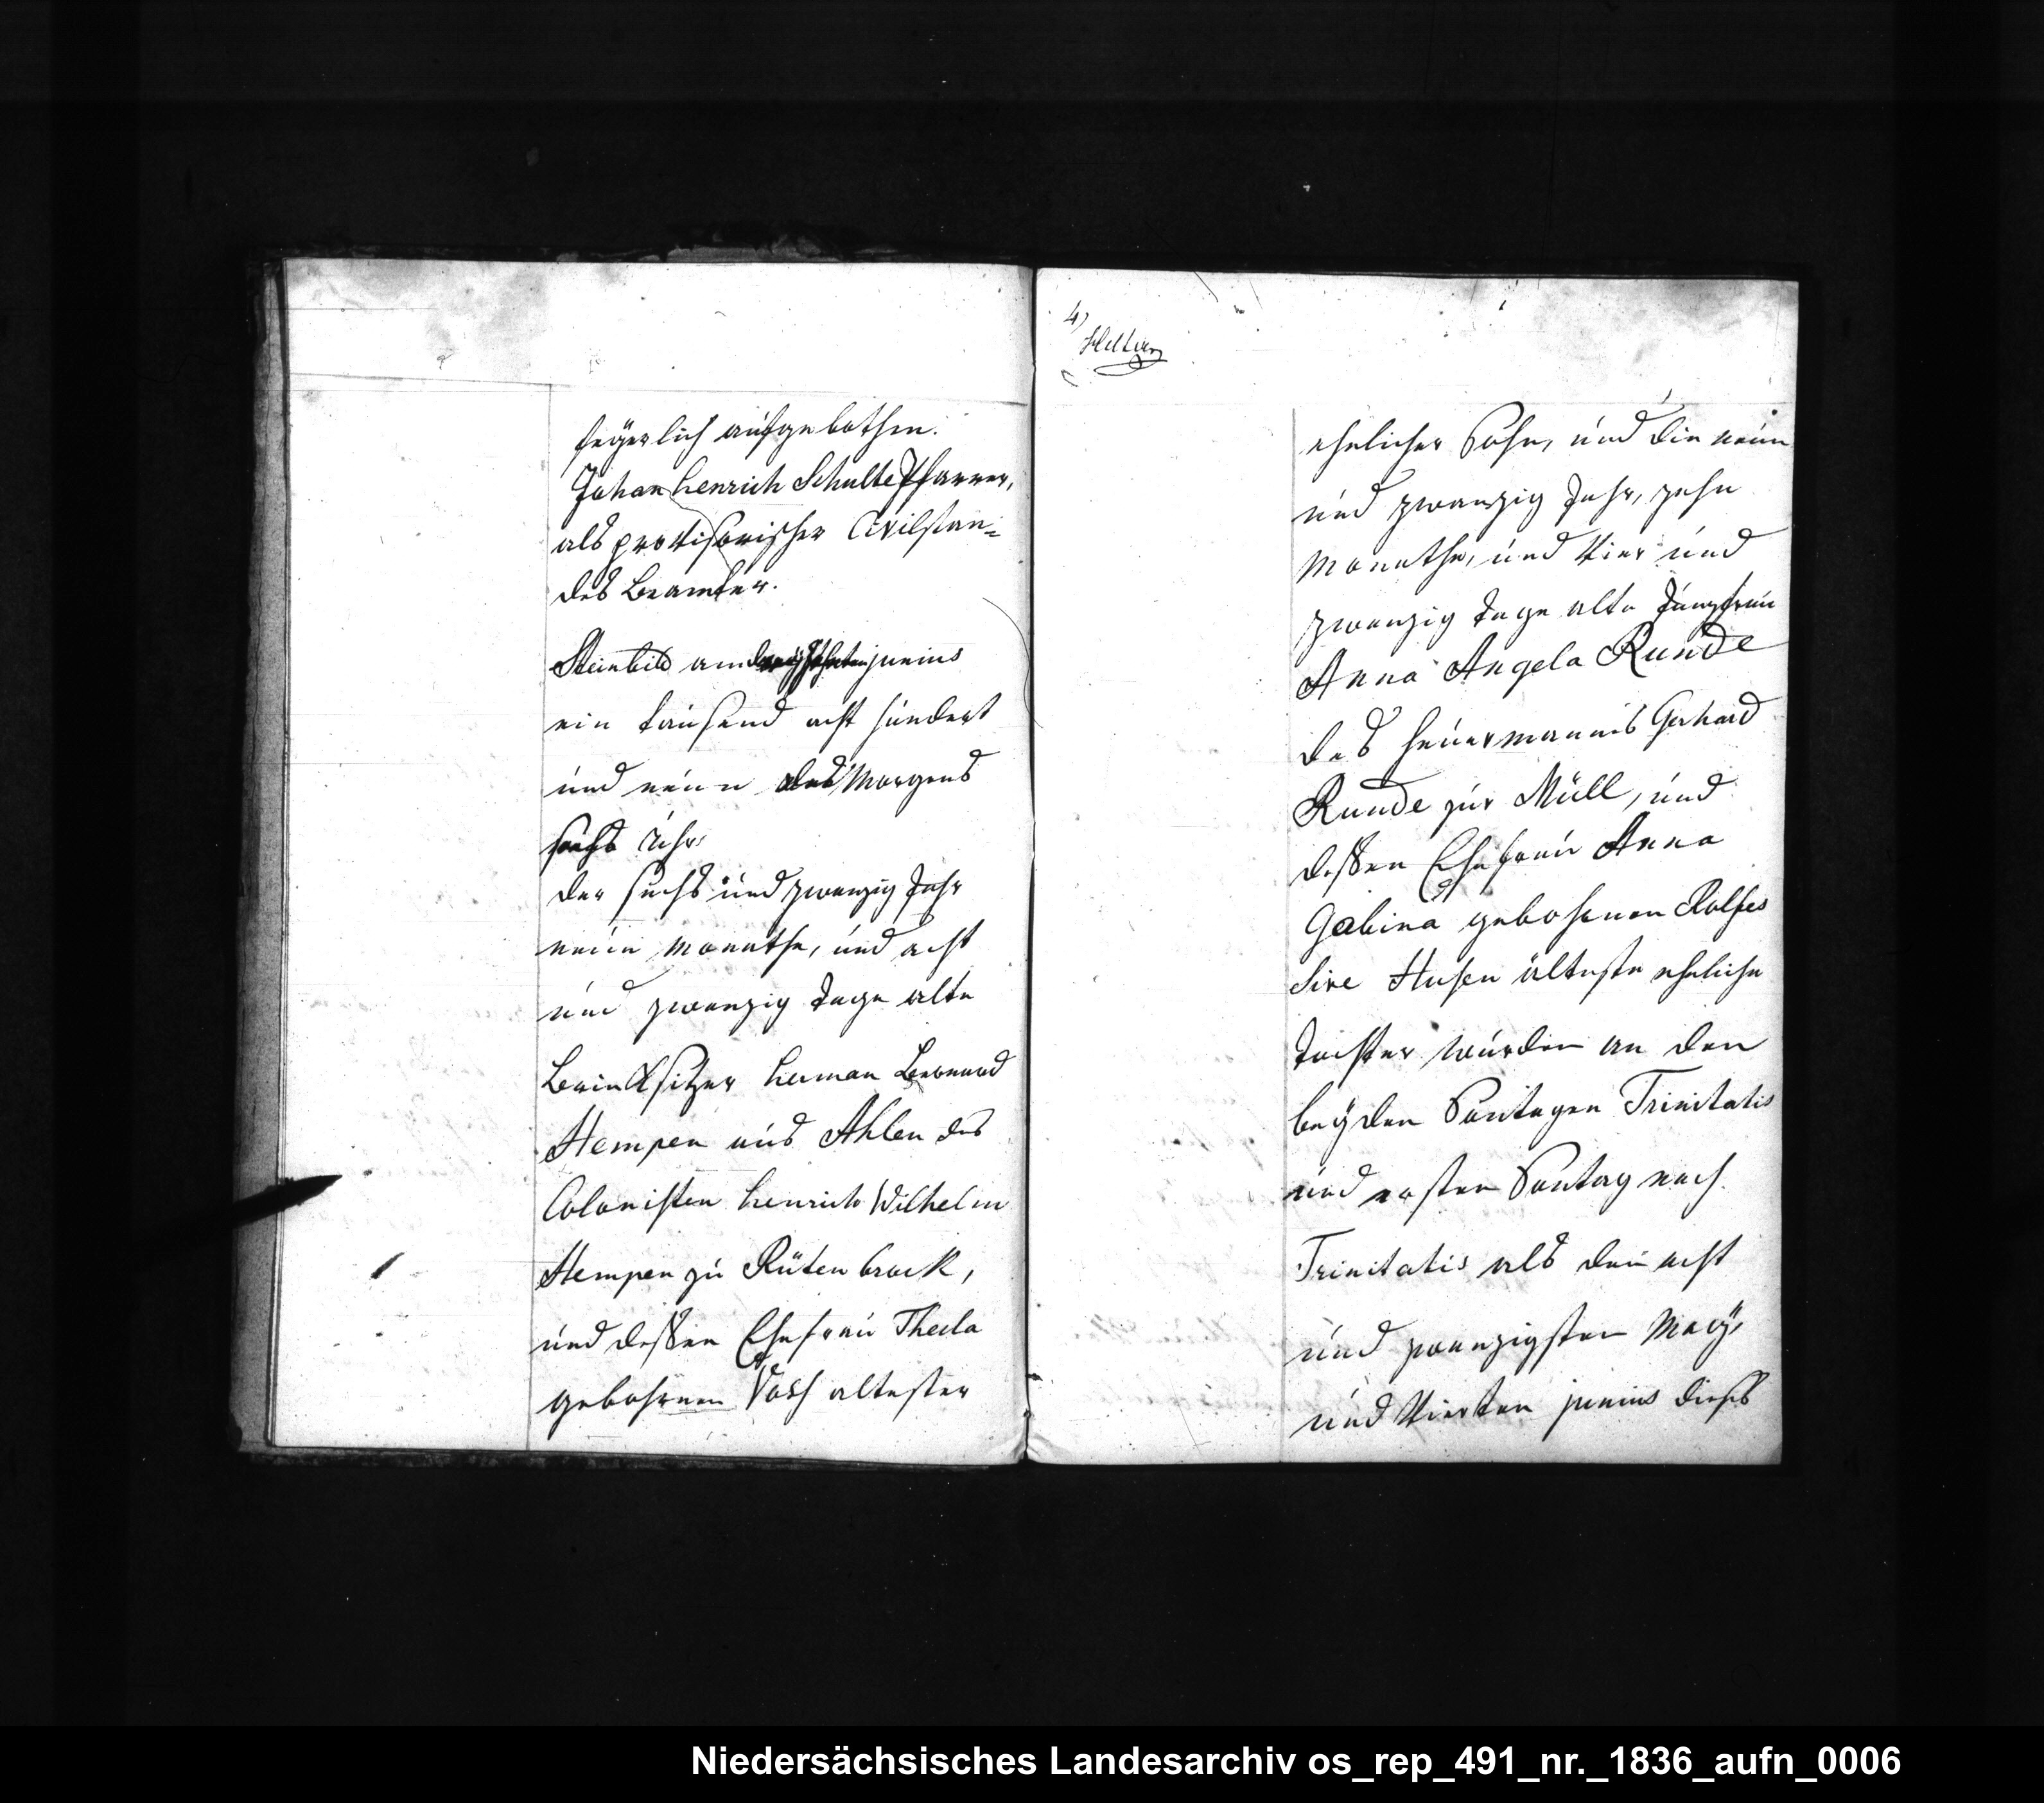 feyerlich aufgebothen.
Johan henrich Schulte Pfarrer,
als provisorischer Civilstan=
des Beamter.
Steinbild am junius
ein tausend acht hundert
und neun des Morgens
sechs Uhr
der sechs und zwanzig Jahr
neun Monathe, und acht
und zwanzig Tage alte
Brincksitzer herman Bernard
Hempen aus Ahlen des
Colonisten henrich Wilhelm
Hempen zu Rütenbrock,
und dessen Ehefrau Thecla
gebohrnen Voss altester
4)
ehelicher Sohn, und die neun
und zwanzig Jahr, zehn
Monathe, und Vier und
zwanzig Tage alte Jungfrau
Anna Angela Runde
des heuermannes Gerhard
Runde zur Müll, und
dessen Ehefrau Anna
Gebina gebohrnen Rolfes
sive Husen älteste eheliche
Tochter wurden an den
beyden Sontagen Trinitatis
und ersten Sontag nach
Trinitatis als den acht
und zwanzigsten May,
und Vierten junius dieses
Niedersächsisches Landesarchiv os_rep_491_nr._1836_aufn_0006